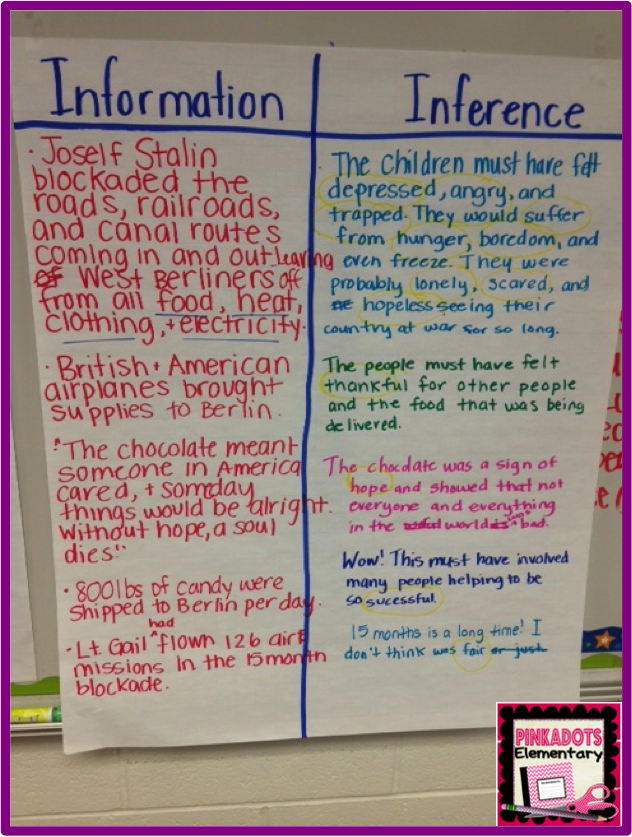 Information
· Joself Stalin
blockaded the
roads, railroads,
and canal routes
coming in and out leaving
of West Berliners off
from all food, heat,
clothing, + electricity.
· British + American
airplanes brought
supplies to Berlin.
"The chocolate meant
someone in America
cared, + somday
things would be alright.
Without hope, a soul
dies!"
· 800 lbs of candy were
shipped to Berlin per day.
had
· Lt. Gail ^ flown 126 airt
missions in the 15 month
blockade.
Inference
The children must have felt
depressed, angry, and
trapped. They would suffer
from hunger, boredom, and
even freeze. They were
probably lonely, scared, and
hopeless seeing their
country at war for so long.
The people must have felt
thankful for other people
and the food that was being
delivered.
The chocolate was a sign of
hope and showed that not
everyone and everything
in the world is bad.
Wow! This must have involved
many people helping to be
so sucessful.
15 months is a long time! I
don't think was fair or just.
PINKADOTS
Elementary